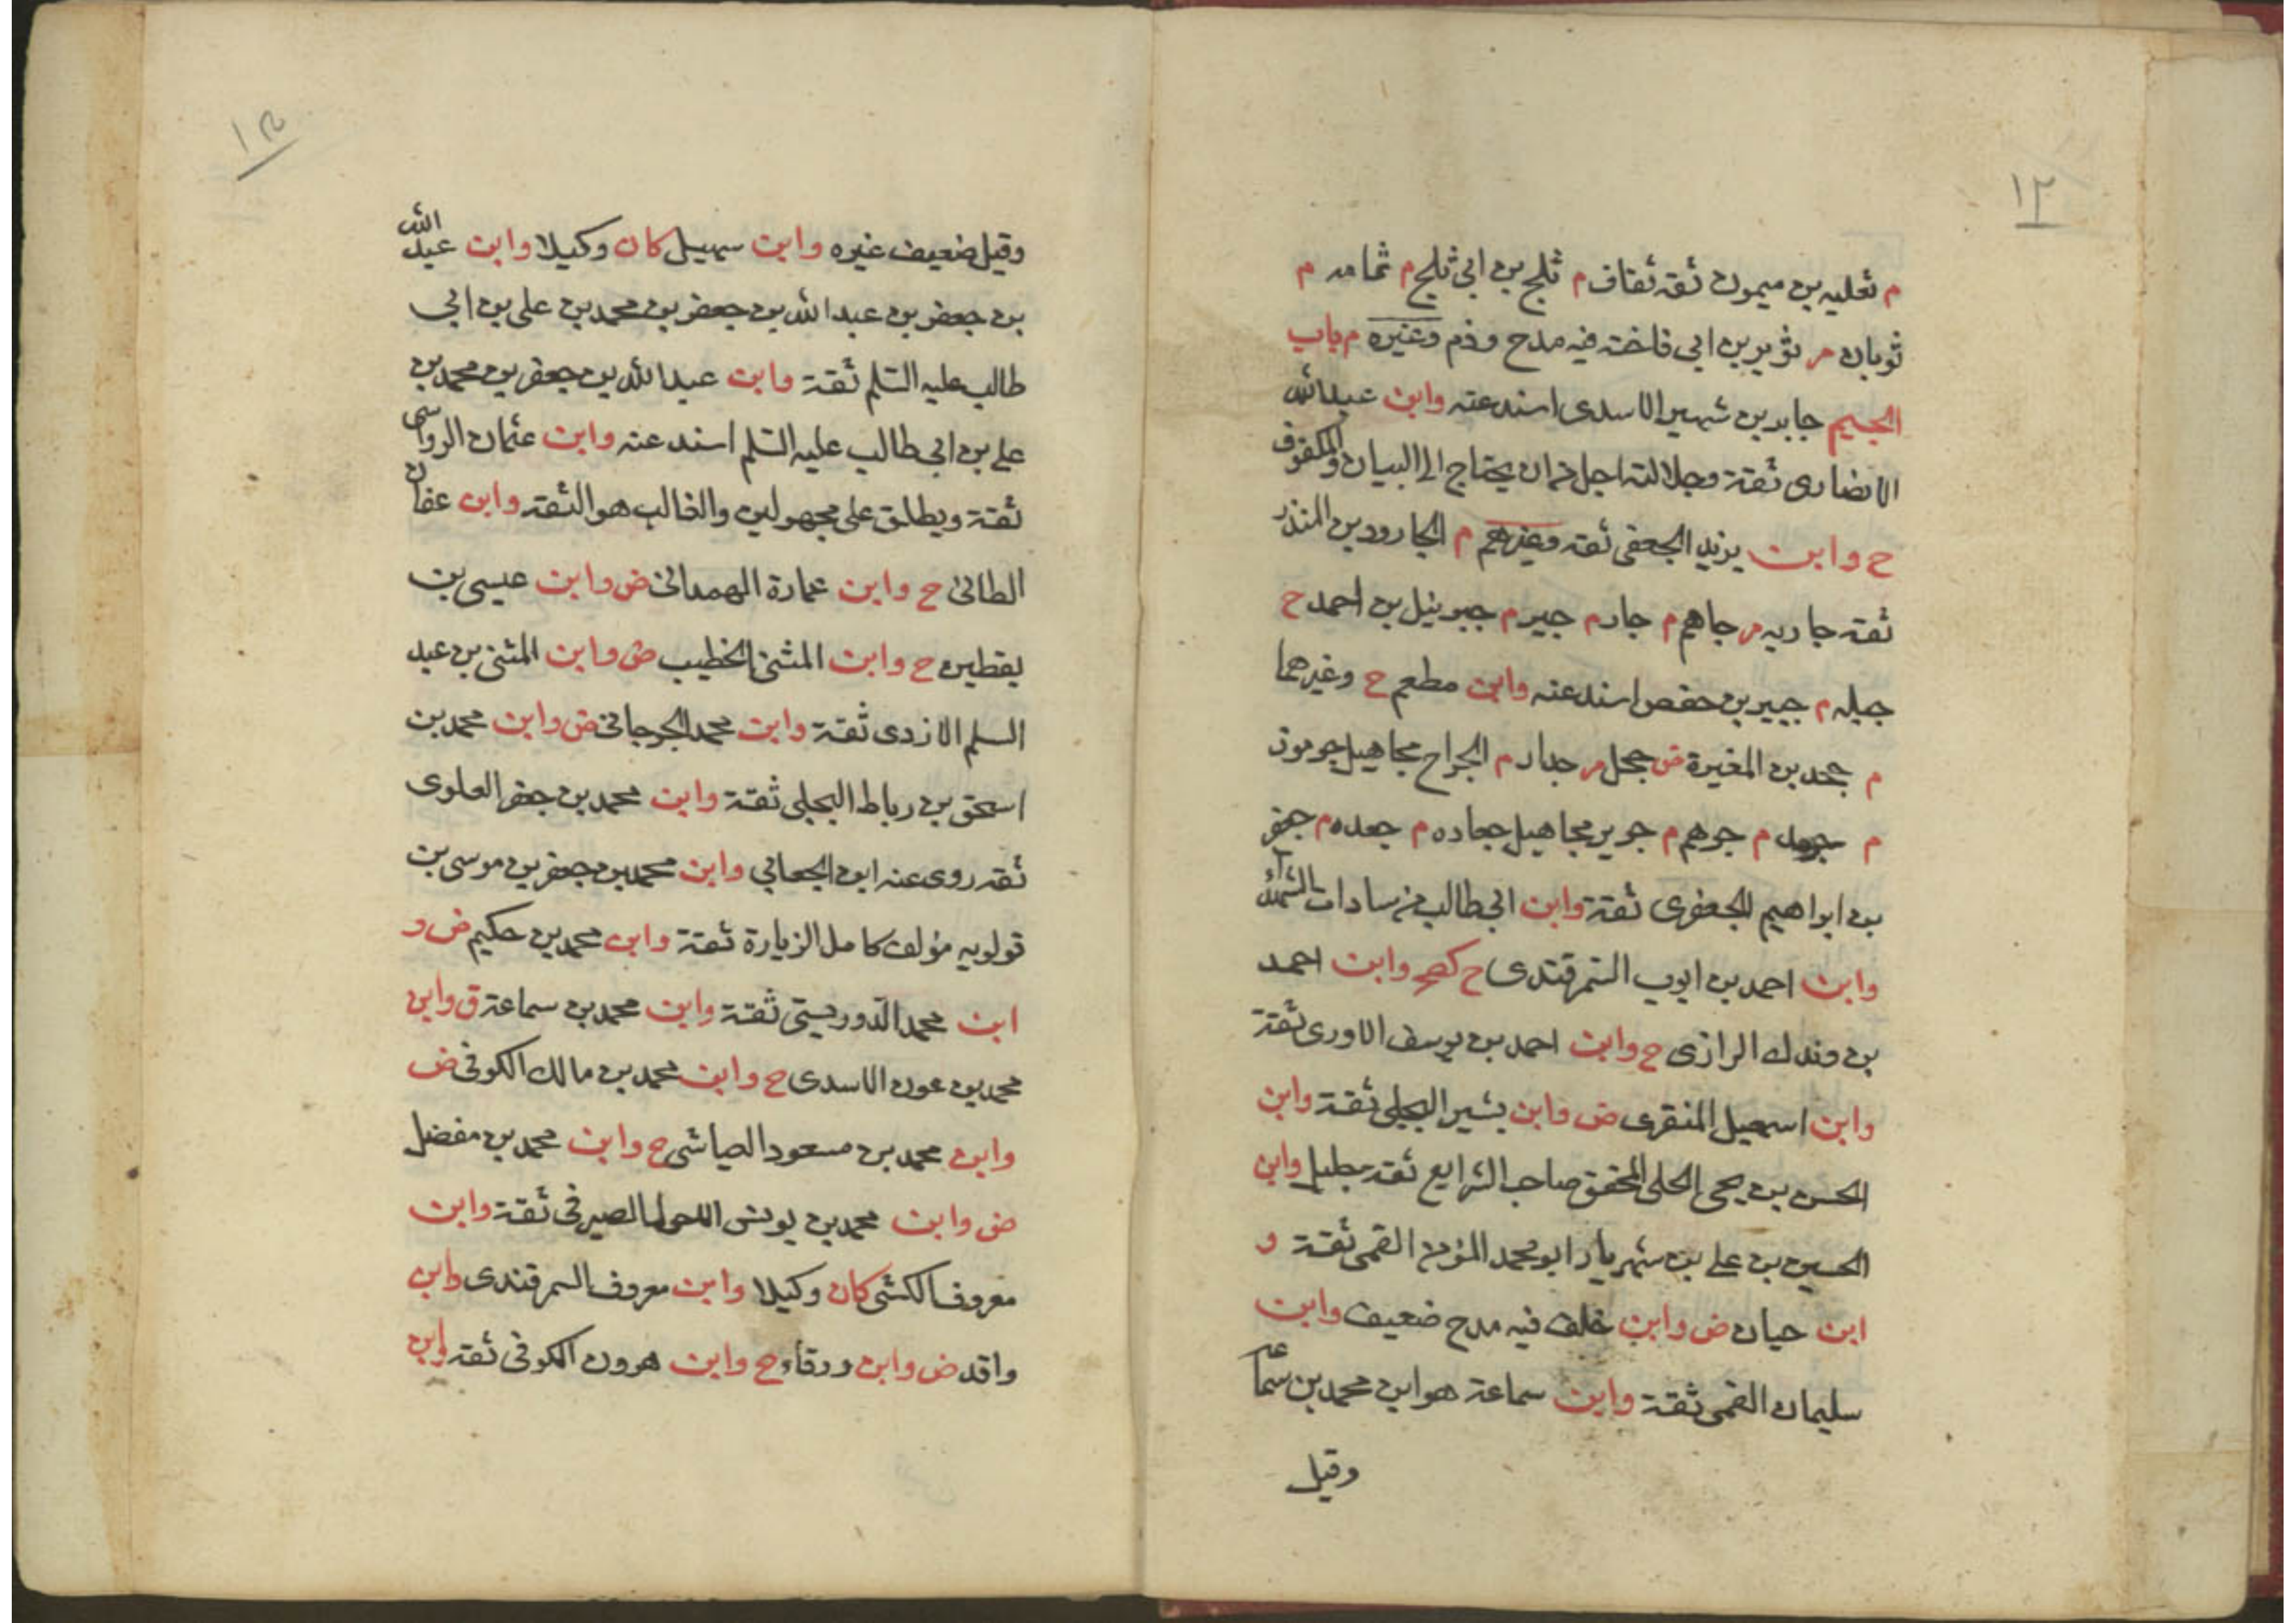 ١٢
م ثعلبه بن ميمون ثقه ثقاف م ثلج بن ابي ثلج م ثمامه م
ثوبان م ثوير بن ابي فاخته فيه مدح وذم وغيره م باب
الجيم جابر بن شهير الاسدى اسند عنه وابن عبد الله
الانصارى ثقة وجلالته اجل من ان يحتاج الى البيان والمكفوف
ح وابن يزيد الجعفى ثقه وغيرهم م الجارود بن المنذر
ثقه جاريه م جاهم م جار م جبر م جبرئيل بن احمد ح
جبله م جبير بن حفص اسند عنه وابن مطعم ح وغيرهما
م جحدر بن المغيرة ض جحل م جدار م الجراح مجاهيل جرموز
م جرهد م جرهم م جرير مجاهيل جعاده م جعده م جعفر
بن ابراهيم الجعفرى ثقة وابن ابي طالب من سادات الشهدآء
وابن احمد بن ايوب السمرقندى ح كصح وابن احمد
بن وندك الرازى ح وابن احمد بن يوسف الاودى ثقة
وابن اسمعيل المنقرى ض وابن بشير البجلى ثقة وابن
الحسن بن يحيى الحلى المحقق صاحب الشرايع ثقه جليل وابن
الحسين بن على بن شهريار ابو محمد المؤمن القمى ثقة و
ابن حيان ض وابن خلف فيه مدح ضعيف وابن
سليمان القمى ثقة وابن سماعة هو ابن محمد بن سماعه
وقيل
وقيل ضعيف غيره وابن سهيل كان وكيلا وابن عبد الله
بن جعفر بن عبد الله بن جعفر بن محمد بن على بن ابى
طالب عليه السلم ثقة وابن عبد الله بن جعفر بن محمد بن
على بن ابى طالب عليه السلم اسند عنه وابن عثمان الرواسى
ثقة ويطلق على مجهولين والغالب هو الثقه وابن عفان
الطائى ح وابن عمارة الهمدانى ض وابن عيسى بن
يقطين ح وابن المثنى الخطيب ض وابن المثنى بن عبد
السلم الازدى ثقة وابن محمد الجرجانى ض وابن محمد بن
اسحق بن رباط البجلى ثقة وابن محمد بن جعفر العلوى
ثقه روى عنه ابن الجعابي وابن محمد بن جعفر بن موسى بن
قولويه مؤلف كامل الزيارة ثقة وابن محمد بن حكيم ض و
ابن محمد الدوريستى ثقة وابن محمد بن سماعة ق وابن
محمد بن عون الاسدى ح وابن محمد بن مالك الكوفى ض
وابن محمد بن مسعود العياشى ح وابن محمد بن مفضل
ض وابن محمد بن يونس الاحول الصيرفى ثقة وابن
معروف الكشى كان وكيلا وابن معروف السمرقندى وابن
واقد ض وابن ورقاء ح وابن هرون الكوفى ثقه وابن